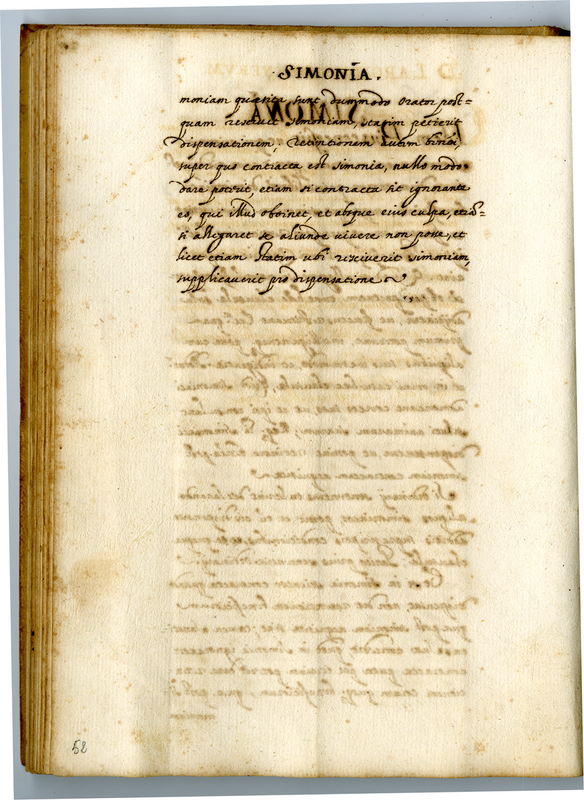 SIMONIA.
moniam quæsita sunt dummodo orator post=
quam resciuit simoniam, statim petierit
dispensationem, retentionem autem
super quo contracta est simonia, nullo modo
dare poterit, etiam si contracta sit ignorante
eo, qui illud obtinet, et absque eius culpa, etiã=
si allegaret se aliunde uiuere non posse, et
licet etiam statim ubi resciuerit simoniam,
supplicauerit pro dispensatione
52